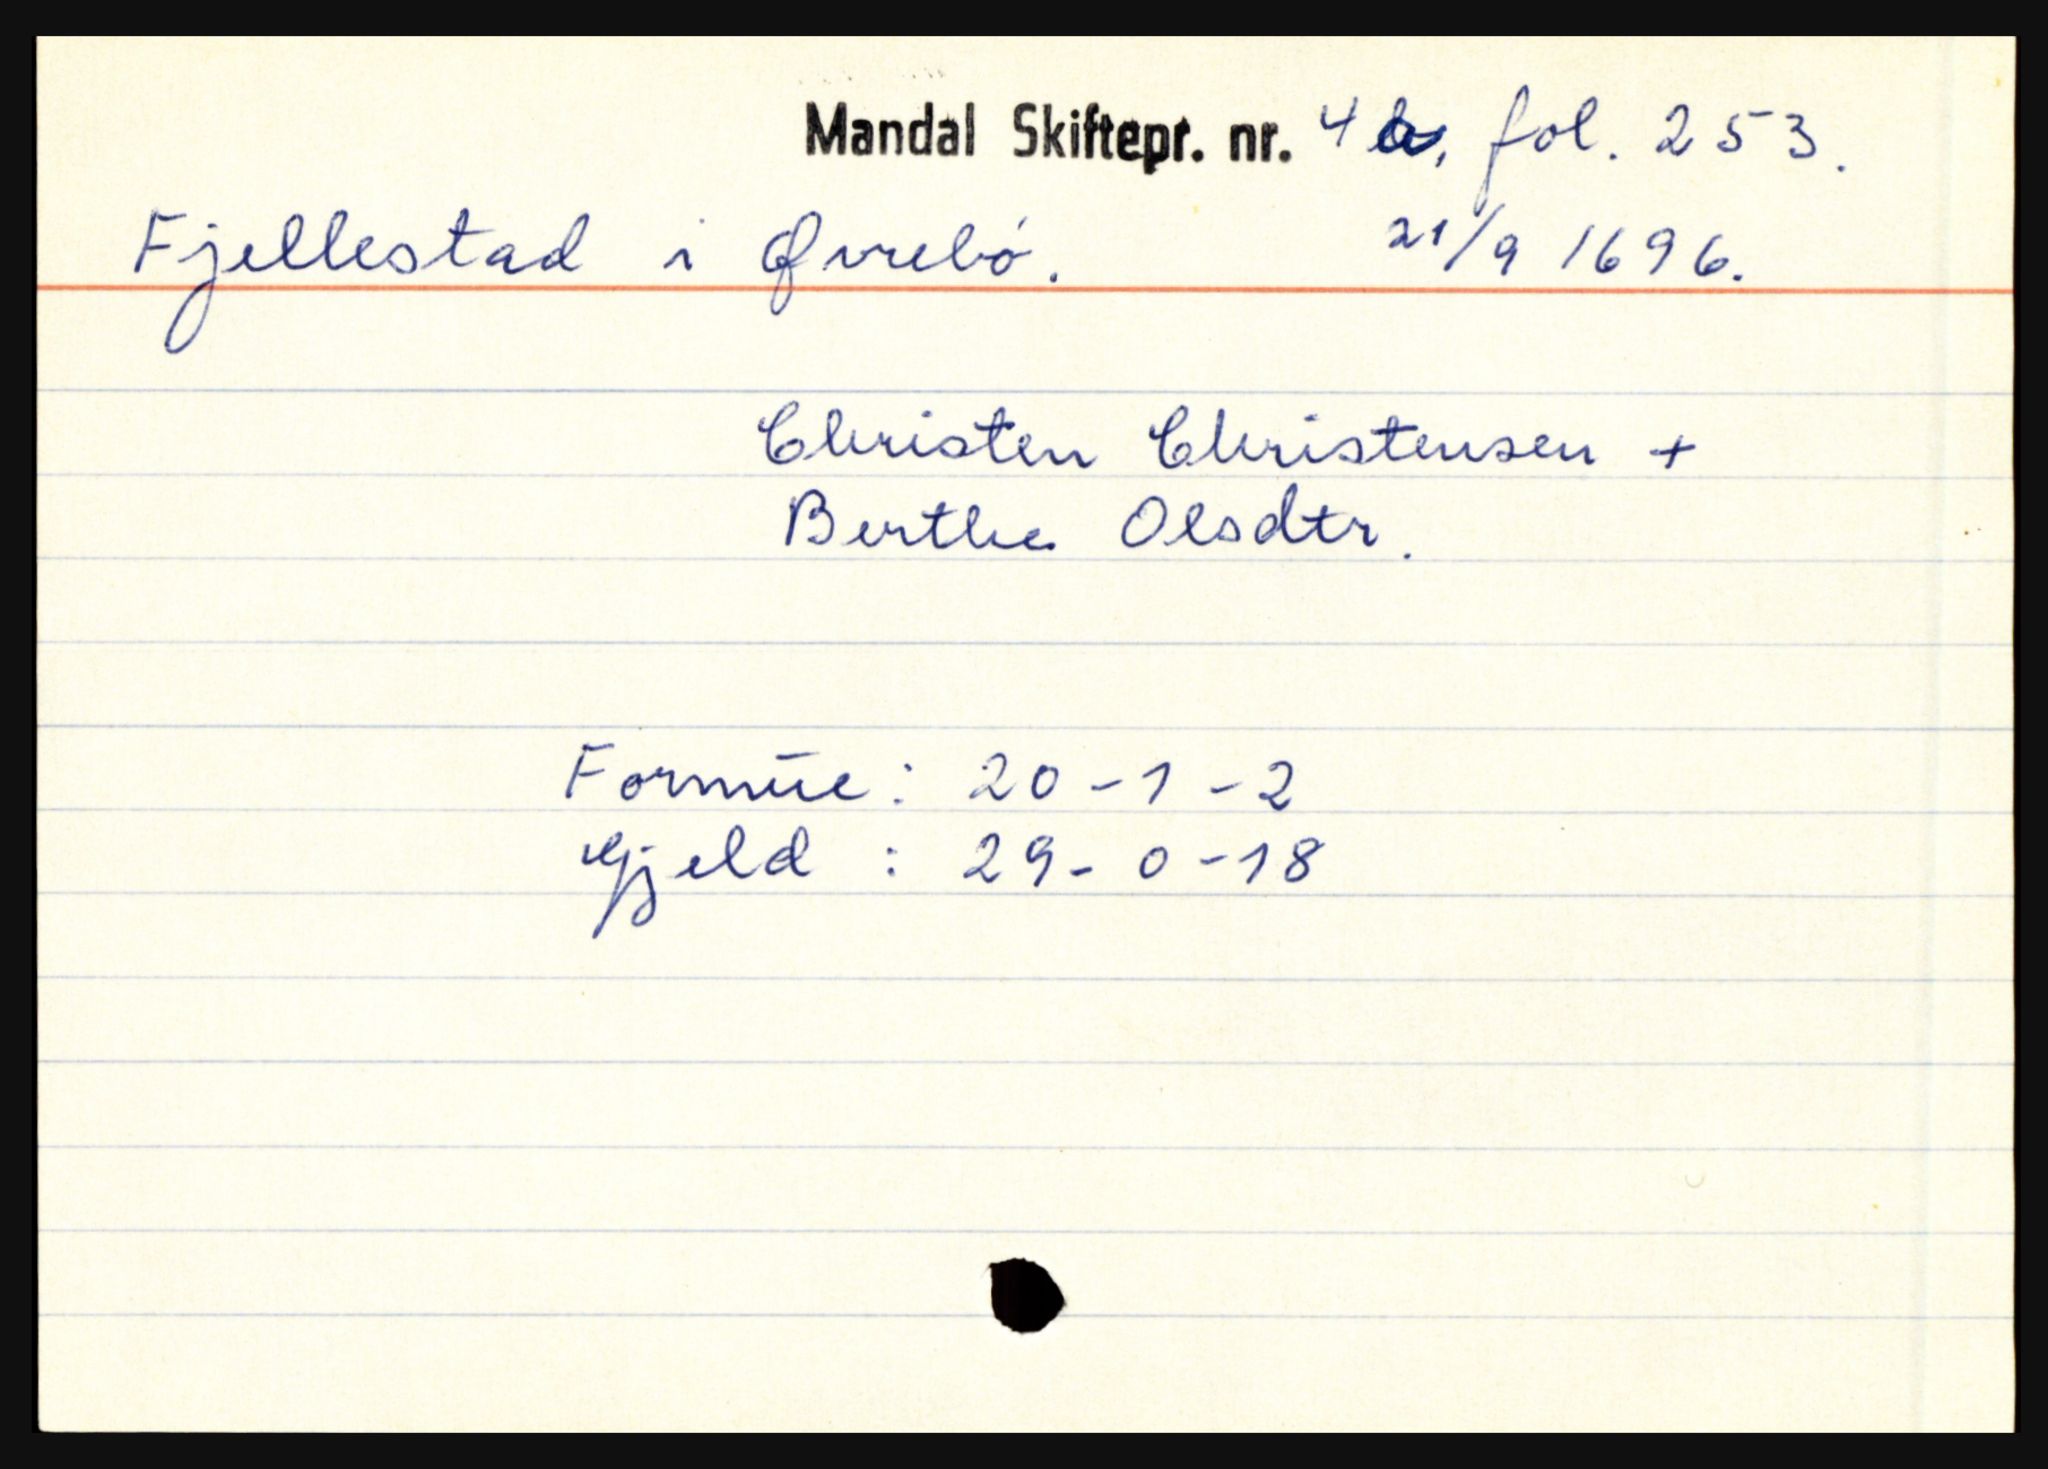 Mandal Skiftepr. nr. 4 fol. 253.
Fjellestad i Øvrebø. 21/9 1696.
Christen Christensen +
Berthe Olsdtr.
Formue: 20-1-2
Gjeld: 29-0-18